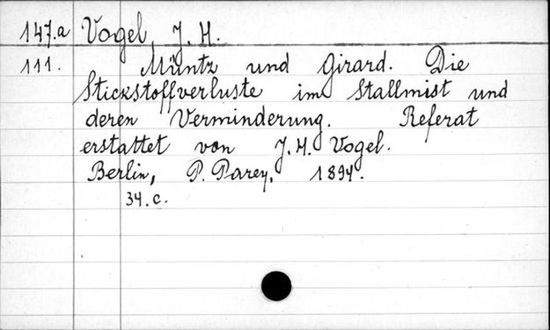 147.a Vogel, J. H.
111. Müntz und Girard. Die
Stickstoffverluste im Stallmist und
deren Verminderung. Referat
erstattet von J. H. Vogel.
Berlin, P. Parey, 1894.
34.c.